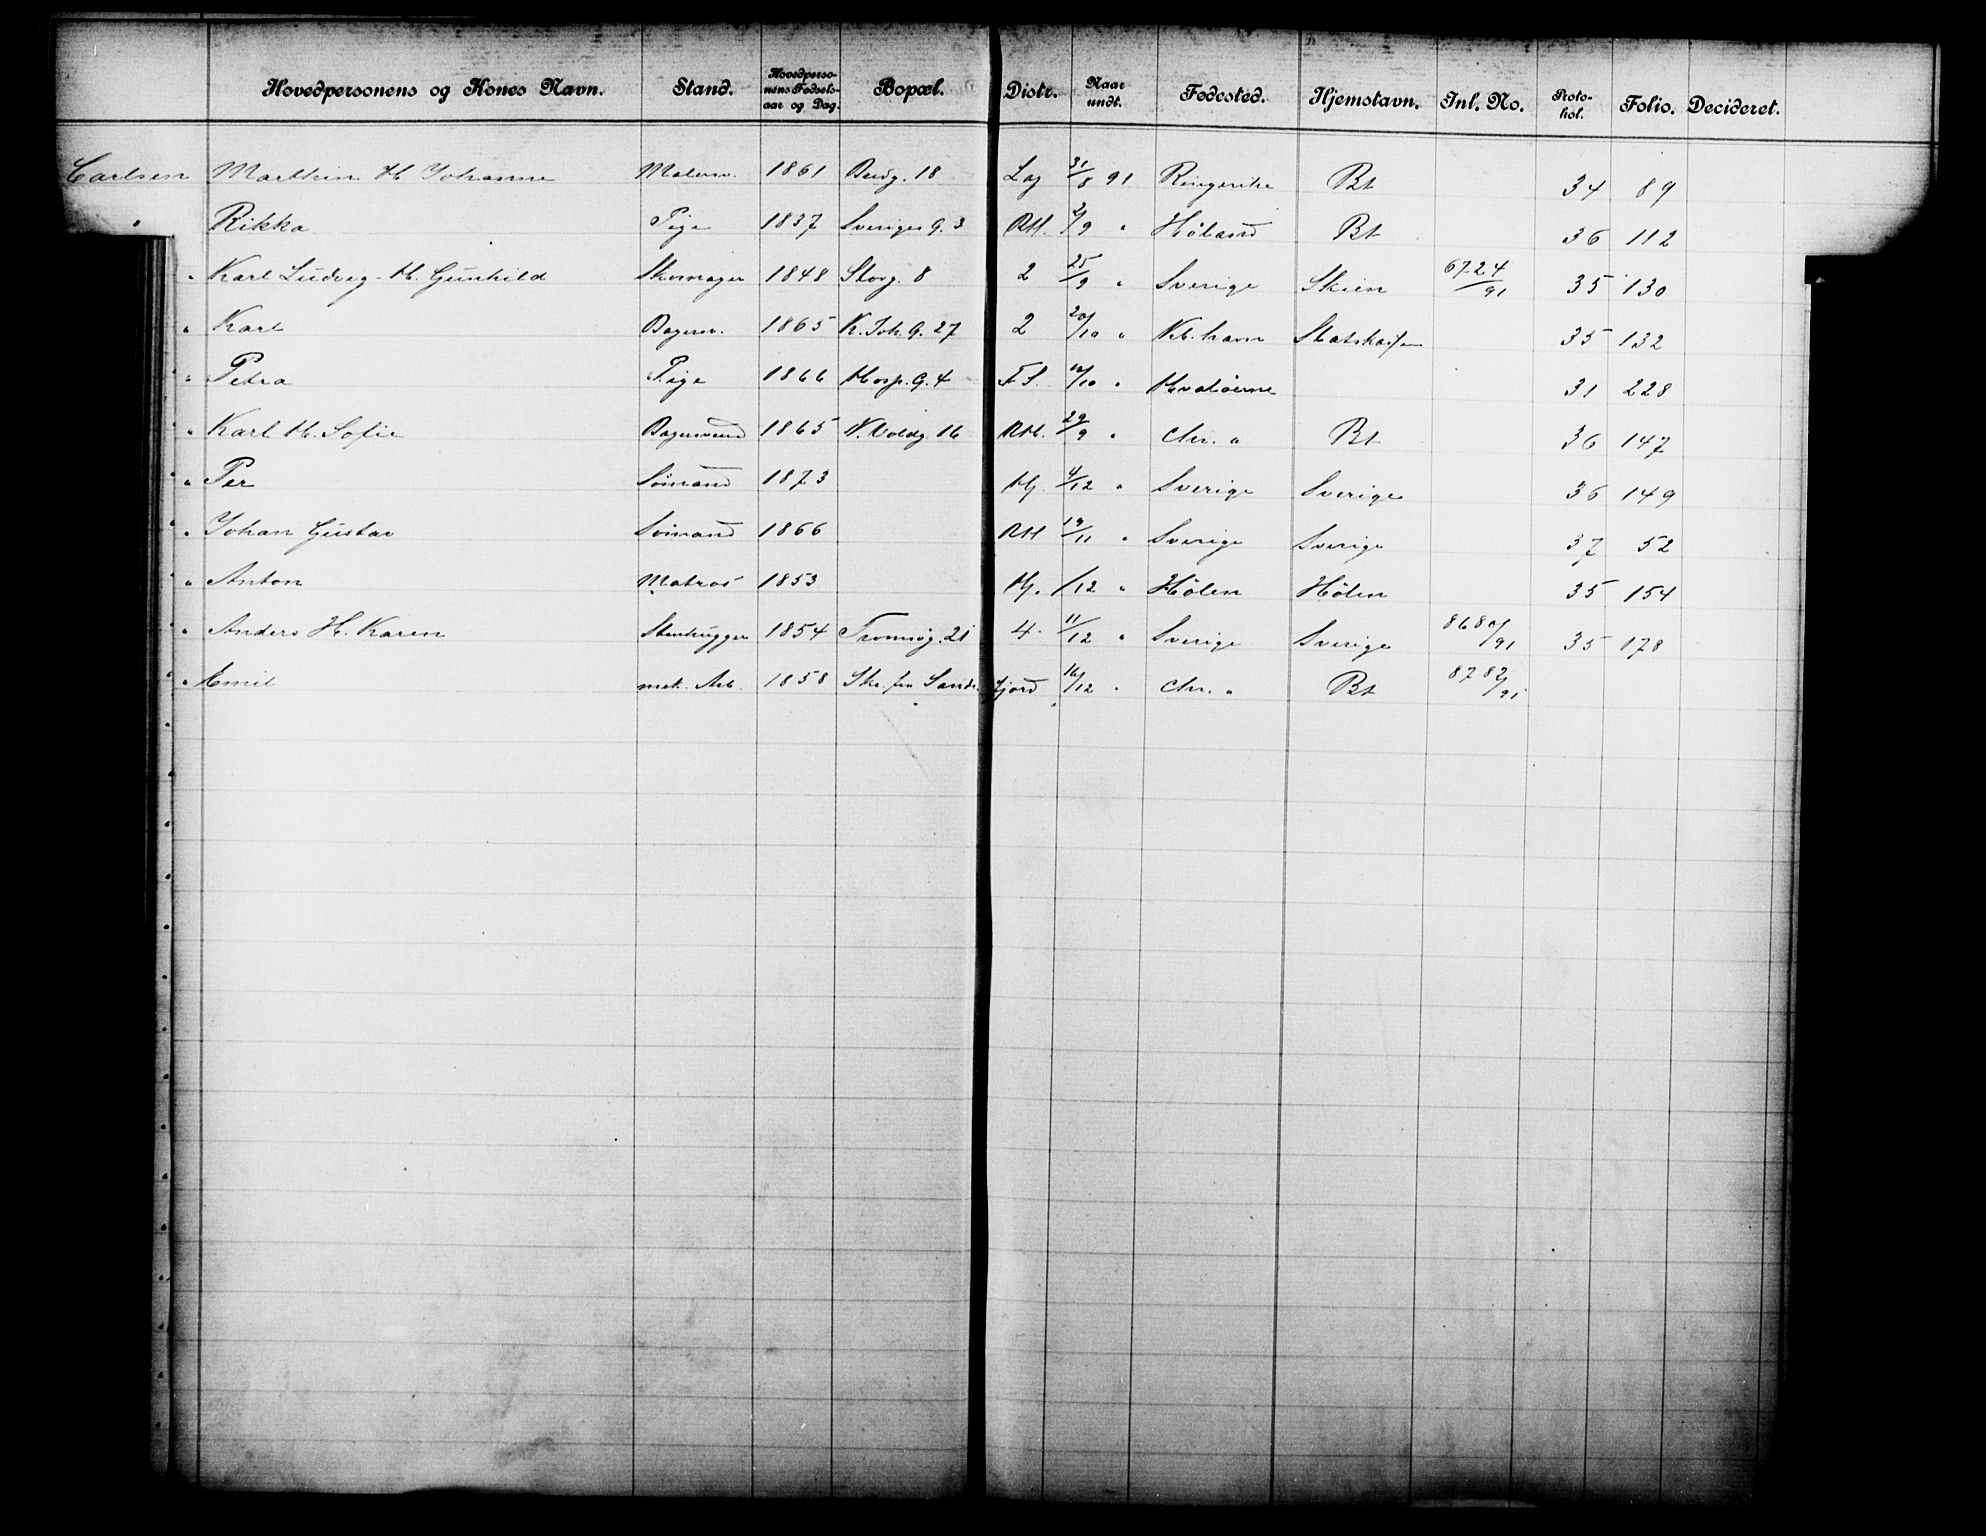 Hovedpersonens og Kones Navn. Stand. Hovedpersonens Fødselsaar og Dag. Bopæl. Distr. Naar undt. Fødested. Hjemstavn. Inl. No. Protokol. Folio. Decideret.
Carlsen Marthin H Johanne Malersv. 1861 Berg. 18 Lag 31/8 91 Ringerike Bt 34 89
" Rikka Pige 1837 Sveriges G. 3 RH. 2/9 " Høland Bt 36 112
" Karl Ludvig H. Gunhild Skomager 1848 Storg. 8 2 25/9 " Sverige Skien 6724/91 35 130
" Karl Bagersv. 1865 K. Joh. G. 27 2 20/10 " Kb.havn Statskassen 35 132
" Petra Pige 1866 Hosp. G. 4 FS. 10/10 " Hvaløerne 31 228
" Karl H. Sofie Bagersvend 1865 N. Voldg. 16 RH. 29/9 " Chr. a Bt 36 147
" Per Sømand 1873 Hj. 4/12 " Sverige Sverige 36 149
" Johan Gustav Sømand 1866 RH 19/11 " Sverige Sverige 37 52
" Anton Matros 1853 Hj. /12 " Hølen Hølen 35 154
" Anders H. Karen Stenhugger 1854 Tromsøg. 21 4. 11/12 " Sverige Sverige 8680/91 35 178
" Emil mek. Arb. 1858 Skr. fra Sandefjord 16/12 " Chr. a Bt 8782/91